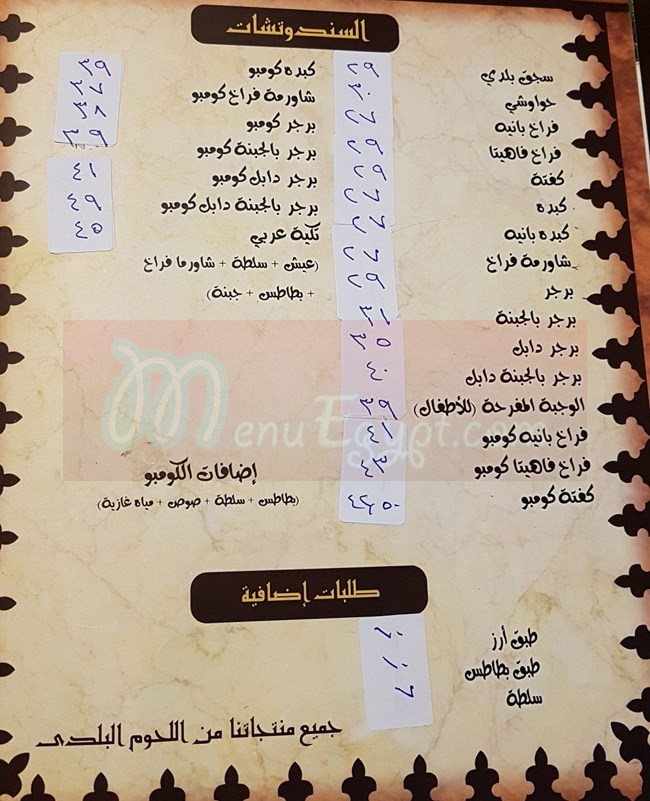 السندوتشات
سجق بلدي ٢٩
حواوشي ٣٠
فراخ بانيه
فراخ فاهيتا
كفتة
كبده
كبده بانيه
شاورمة فراخ
برجر
برجر بالجبنة
برجر دابل ٣٥
برجر بالجبنة دابل ٤٠
الوجبة المفرحة (للأطفال) ٣٩
فراخ بانيه كومبو
فراخ فاهيتا كومبو ٤٣
كفتة كومبو
كبده كومبو ٣٩
شاورمة فراخ كومبو ٣٧
برجر كومبو ٣٨
برجر بالجبنة كومبو ٣٩
برجر دابل كومبو ٤١
برجر بالجبنة دابل كومبو ٤٩
تكية عربي ٤٥
(عيش + سلطة + شاورما فراخ
+ بطاطس + جبنة)
MenuEgypt.com
إضافات الكومبو
(بطاطس + سلطة + صوص + مياه غازية)
طلبات إضافية
طبق أرز
طبق بطاطس
سلطة ٦
جميع منتجاتنا من اللحوم البلدى